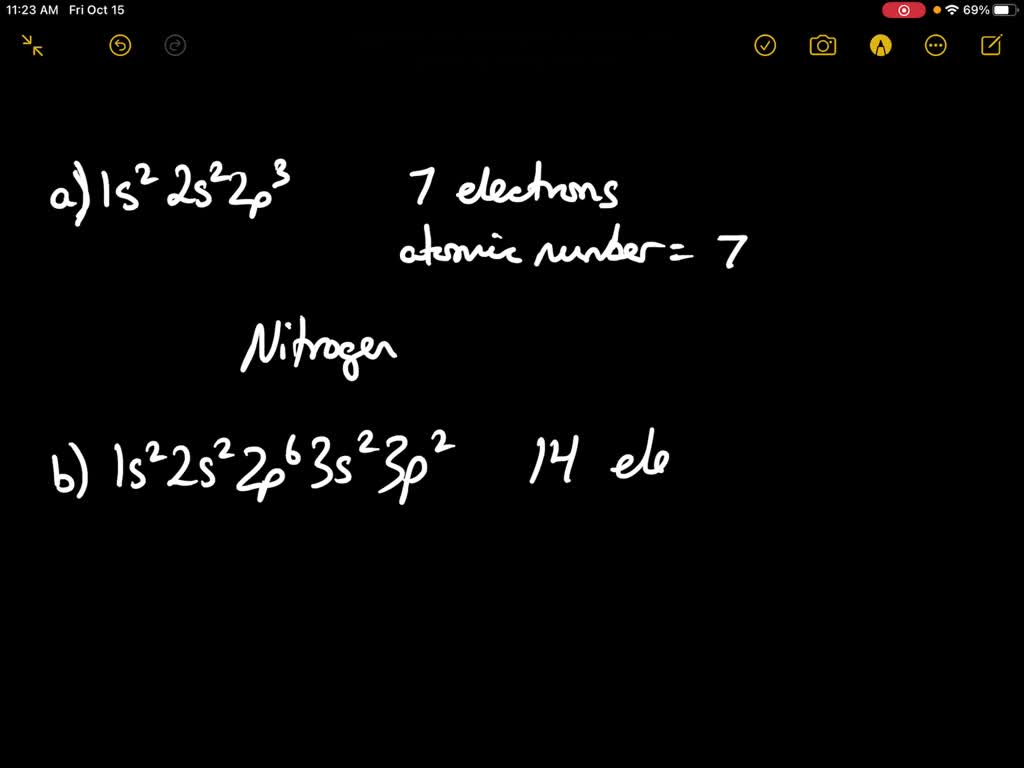 11:23 AM Fri Oct 15 69%
a) 1s² 2s² 2p³ 7 electrons
atomic number = 7
Nitrogen
b) 1s² 2s² 2p⁶ 3s² 3p² 14 ele